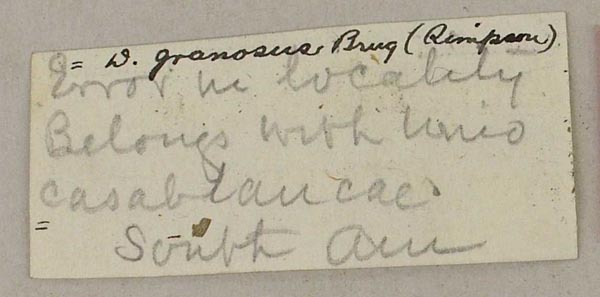 = D. granosus Brug (Simpson)
Error in locality
Belongs with Unio
casablancae
=
South Am